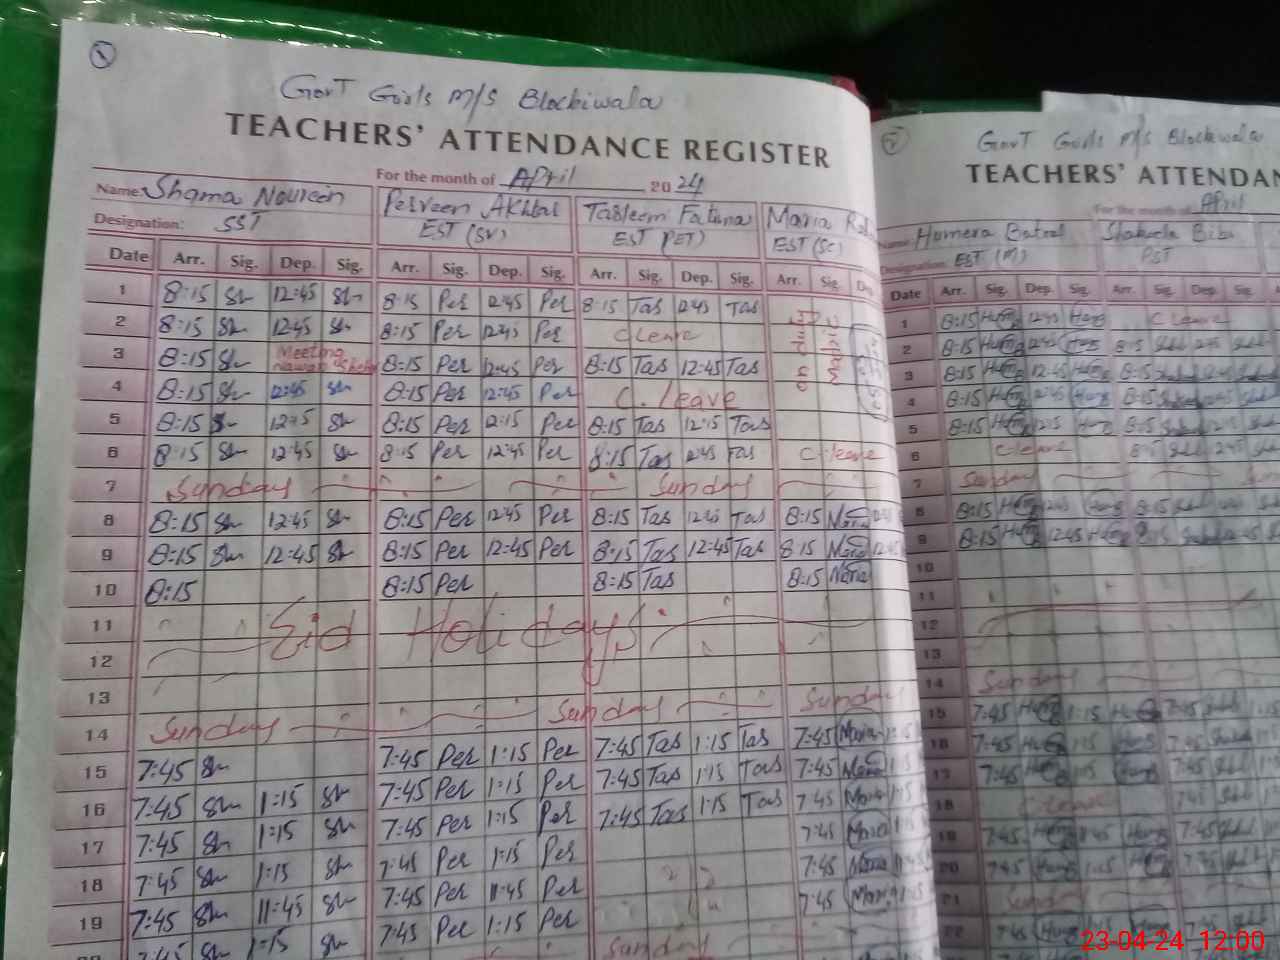 Govt Girls M/S Blockiwala
TEACHERS' ATTENDANCE REGISTER
For the month of April 2024
Name: Shama Noureen Perveen Akhtar Tasleem Fatima Maria
Designation: SST EST (SV) EST (PET) EST (SC)
Date Arr. Sig. Dep. Sig. Arr. Sig. Dep. Sig. Arr. Sig. Dep. Sig. Arr. Sig.
1 8:15 Sh 12:45 Sh 8:15 Per 12:45 Per 8:15 Tas 12:45 Tas
2 8:15 Sh 12:45 Sh 8:15 Per 12:45 Per C leave
3 8:15 Sh Meeting 8:15 Per 12:45 Per 8:15 Tas 12:45 Tas
4 8:15 Sh 12:45 Sh 8:15 Per 12:45 Per C. leave
5 8:15 Sh 12:15 8:15 Per 12:15 Per 8:15 Tas 12:15 Tas
6 8:15 Sh 12:45 Sh 8:15 Per 12:45 Per 8:15 Tas 12:45 Tas C. leave
7 Sunday Sunday
8 8:15 Sh 12:45 Sh 8:15 Per 12:45 Per 8:15 Tas 12:45 Tas 8:15 Maria
9 8:15 Sh 12:45 Sh 8:15 Per 12:45 Per 8:15 Tas 12:45 Tas 8:15 Maria 12:45
10 8:15 8:15 Per 8:15 Tas 8:15 Maria
11 Eid Holidays
12
13
14 Sunday Sunday Sunday
15 7:45 Sh 7:45 Per 1:15 Per 7:45 Tas 1:15 Tas 7:45 Maria
16 7:45 Sh 1:15 Sh 7:45 Per 1:15 Per 7:45 Tas 1:15 Tas 7:45 Maria
17 7:45 Sh 1:15 Sh 7:45 Per 1:15 Per 7:45 Tas 1:15 Tas 7:45 Maria
18 7:45 Sh 1:15 Sh 7:45 Per 1:15 Per 7:45 Maria
19 7:45 Sh 11:45 Sh 7:45 Per 11:45 Per 7:45 Maria
7:45 Sh 1:15 Sh 7:45 Per 1:15 Per 7:45 Maria
Sunday
Govt Girls M/S Blockiwala
TEACHERS' ATTENDAN
For the month of April
Name: Humera Batool Shakeela Bibi
Designation: EST (M) PST
Date Arr. Sig. Dep. Sig. Arr. Sig. Dep. Sig.
1 8:15 Hum 12:45 Hum C Leave
2 8:15 Hum 12:45 Hum 8:15
3 8:15 Hum 12:45 Hum 8:15
4 8:15 Hum 12:45 Hum 8:15
5 8:15 Hum 12:15 Hum 8:15
6 C leave 8:15
7 Sunday
8 8:15 Hum 12:45 Hum 8:15
9 8:15 Hum 12:45 Hum 8:15
10
11
12
13
14 Sunday
15 7:45 Hum 1:15 Hum 7:45
16 7:45 Hum 1:15 Hum 7:45
17 7:45 Hum 1:15 Hum 7:45
18 C leave 7:45
19 7:45 Hum 11:45 Hum 7:45
20 7:45 Hum 1:15 Hum 7:45
21 Sunday
22 7:45 Hum
23-04-24 12:00